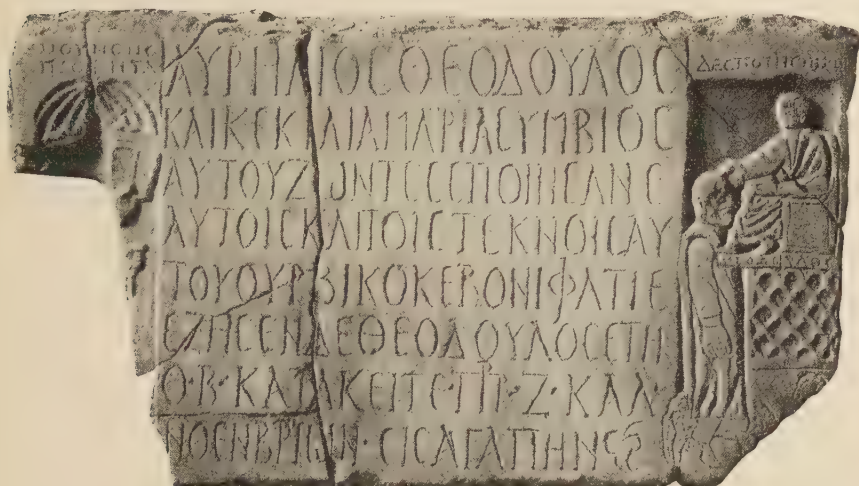 ΑΥΡΗΛΙΟϹΘΕΟΔΟΥΛΟϹ
ΚΑΙΚΕΚΙΛΙΑΜΑΡΙΑϹΥΜΒΙΟϹ
ΑΥΤΟΥΖΩΝΤΕϹΕΠΟΙΗϹΑΝΕ
ΑΥΤΟΙϹΚΑΙΤΟΙϹΤΕΚΝΟΙϹΑΥ
ΤΟΥΟΥΡΒΙΚΟΚΕΒΟΝΙΦΑΤΙΕ
ΕΖΗϹΕΝΔΕΘΕΟΔΟΥΛΟϹΕΤΗ
Ο·Β·ΚΑΤΑΚΕΙΤΕ·ΠΡ·Ζ·ΚΑΛ·
ΝΟΕΝΒΡΙΩΝ·ΕΙϹΑΓΑΠΗΝ